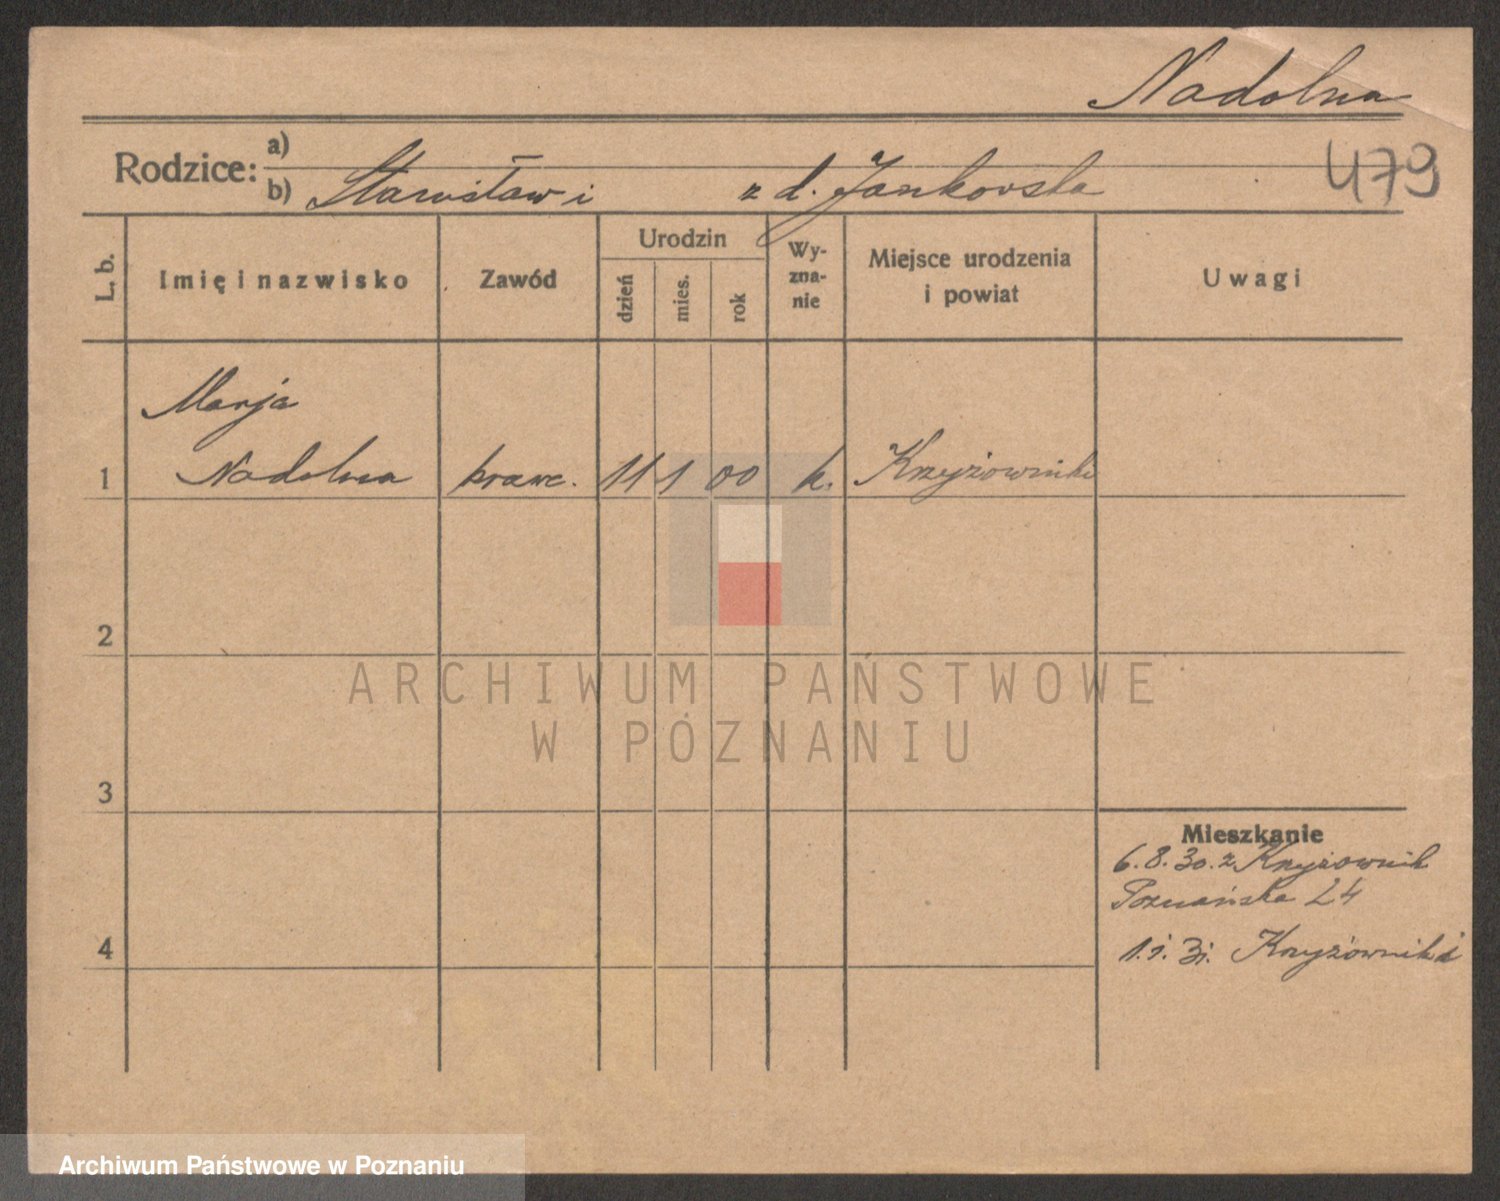 Nadolna
479
Rodzice:
a)
b) Stanisław i z d. Jankowska
L. b.
Imię i nazwisko
Zawód
Urodzin
dzień
mies.
rok
Wy-
zna-
nie
Miejsce urodzenia
i powiat
Uwagi
Marja
1 Nadolna krawc. 11 1 00 k. Krzyżowniki
2
3
4
Mieszkanie
6.8.30. z Krzyżownik
Poznańska 24
1.1.31. Krzyżowniki
ARCHIWUM PAŃSTWOWE
W POZNANIU
Archiwum Państwowe w Poznaniu